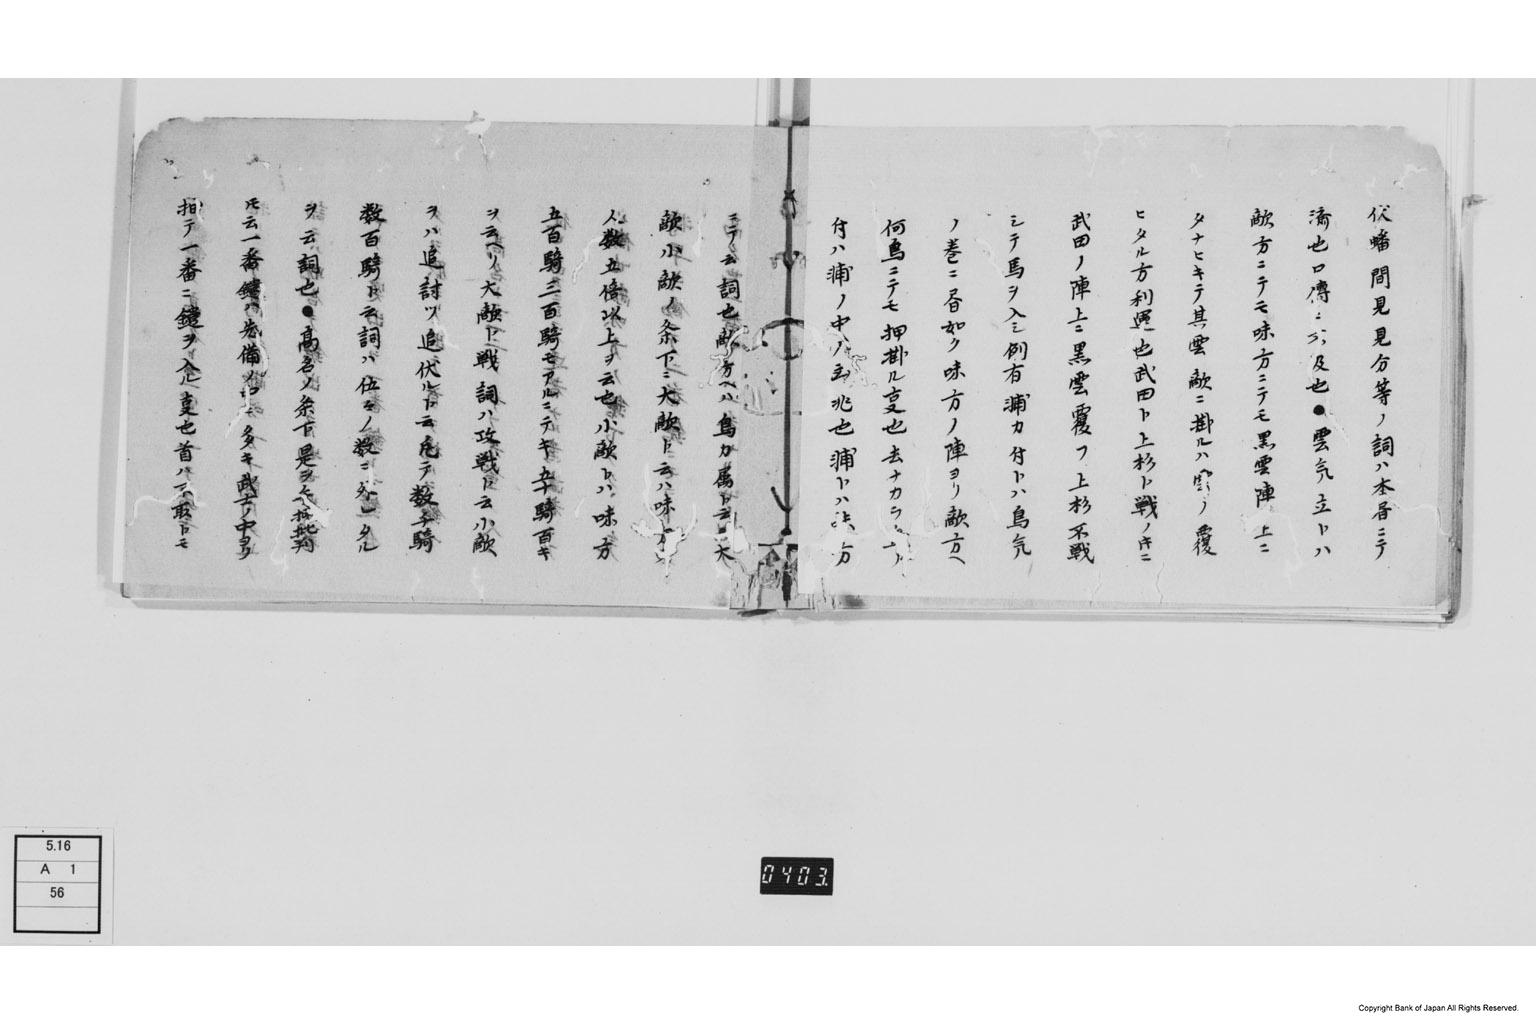 伏蟠間見見分等ノ詞ハ本書ニテ
済也口傳ニ不及也●雲気立トハ
敵方ニテモ味方ニテモ黒雲陣ノ上ニ
タナヒキテ其雲敵ニ掛ルハ ノ覆
ヒタル方利運也武田ト上杉ト戦ノキニ
武田ノ陣上ニ黒雲覆フ上杉不戦
シテ馬ヲ入シ例有浦カ付トハ烏気
ノ巻ニ昏如ク味方ノ陣ヨリ敵方ヘ
何烏ニテモ押掛ル事也去ナカラ
付ハ浦ノ中ノ 兆也浦トハ 方
ニテ云詞也敵ノ方ヘハ烏カ属ト云 大
敵小敵ノ条下ニ大敵ト云ハ味方
人数五倍以上ヲ云也小敵トハ味方
五百騎ニ百騎モアルニテキ五十騎百キ
ヲ云ヘリ大敵ト戦詞ハ攻戦ト云小敵
ヲハ追討ツ追伏ルト云 テ数千騎
数百騎ト云詞ハ伍々ノ数ニ外レタル
ヲ云詞也●高名ノ条下是ヲ 批判
モ云一番鑓ハ先備ノ 多キ武士ノ中ヨリ
抽テ一番ニ鑓ヲ入ル事也首ハ不取トモ
5.16
A 1
56
0403.
Copyright Bank of Japan All Rights Reserved.